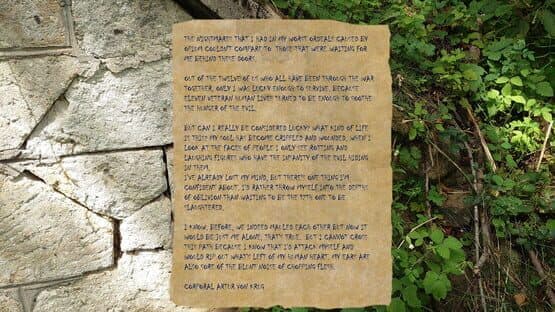 THE NIGHTMARES THAT I HAD IN MY WORST ORDEALS CAUSED BY
OPIUM COULDN'T COMPARE TO THOSE THAT WERE WAITING FOR
ME BEHIND THESE DOORS.
OUT OF THE TWELVE OF US WHO ALL HAVE BEEN THROUGH THE WAR
TOGETHER, ONLY I WAS LUCKY ENOUGH TO SURVIVE, BECAUSE
ELEVEN VETERAN HUMAN LIVES TURNED TO BE ENOUGH TO SOOTHE
THE HUNGER OF THE EVIL.
BUT CAN I REALLY BE CONSIDERED LUCKY? WHAT KIND OF LIFE
IS THIS? MY SOUL HAS BECOME CRIPPLED AND WOUNDED, WHEN I
LOOK AT THE FACES OF PEOPLE I ONLY SEE ROTTING AND
LAUGHING FIGURES WHO HAVE THE INSANITY OF THE EVIL HIDING
IN THEM.
I'VE ALREADY LOST MY MIND, BUT THERE'S ONE THING I'M
CONFIDENT ABOUT, I'D RATHER THROW MYSELF INTO THE DEPTHS
OF OBLIVION THAN WAITING TO BE THE 12TH ONE TO BE
SLAUGHTERED.
I KNOW, BEFORE, WE INDEED MAULED EACH OTHER BUT NOW IT
WOULD BE JUST ME ALONE, THAT'S TRUE. BUT I CANNOT CROSS
THIS PATH BECAUSE I KNOW THAT I'D ATTACK MYSELF AND
WOULD RIP OUT WHAT'S LEFT OF MY HUMAN HEART. MY EARS ARE
ALSO SORE OF THE SILENT NOISE OF CHOPPING FLESH.
CORPORAL ARTUR VON KRIG